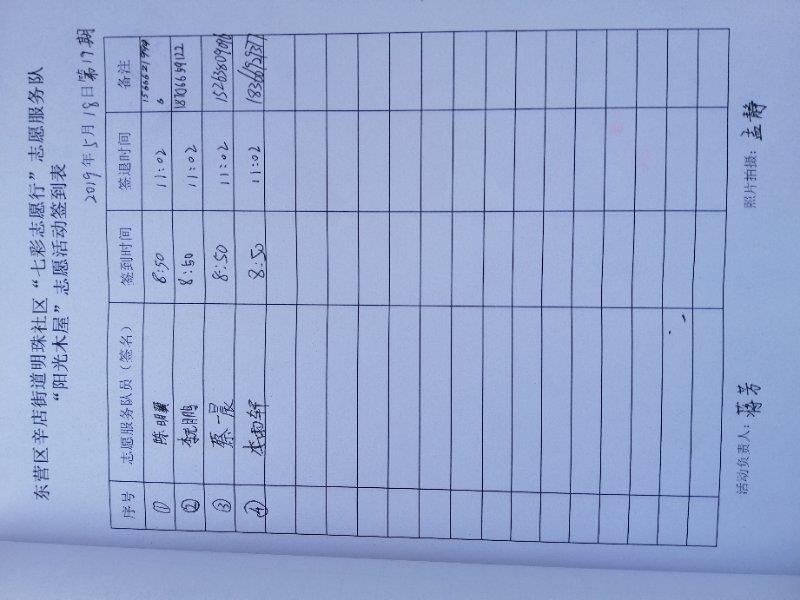 东营区辛店街道明珠社区“七彩志愿行”志愿服务队
“阳光木屋”志愿活动签到表
2019年5月18日第17期
序号 志愿服务队员（签名） 签到时间 签退时间 备注
① 陈明翼 8:50 11:02
② 8:50 11:02 18706659122
③ 蔡一晨 8:50 11:02 15263809096
④ 李雨轩 8:50 11:02
活动负责人：蒋芳 照片拍摄：孟静